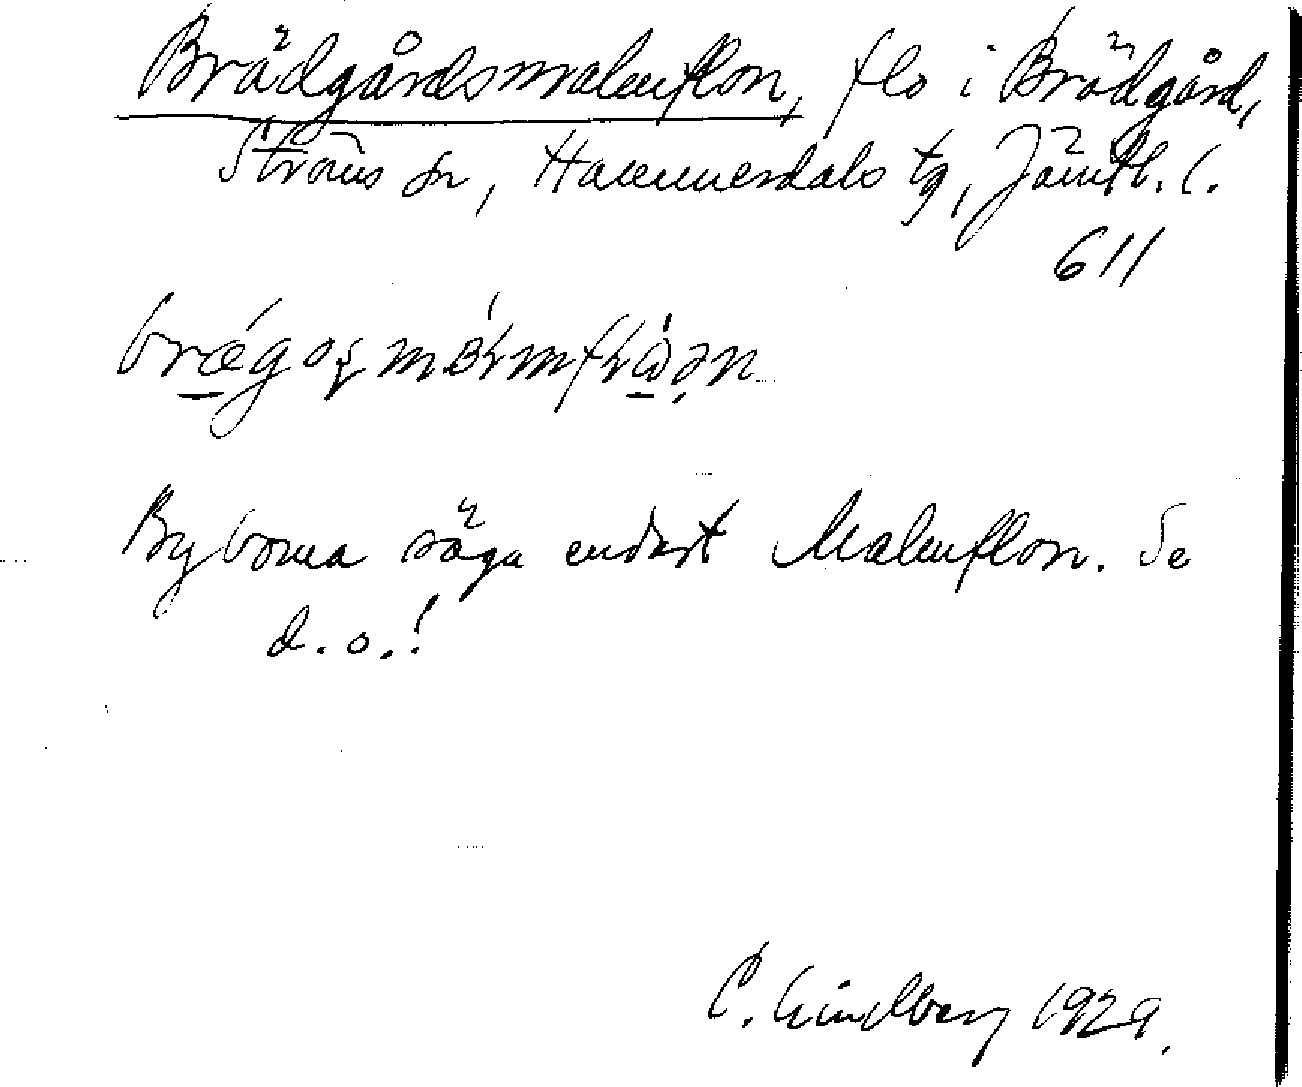 Brädgårdsmalenflon, flo i Brädgård,
Ströms sn, Hammerdals tg, Jämtl. l.
611
Byborna säga endast Malenflon. Se
d. o.!
C. Lindberg 1929.